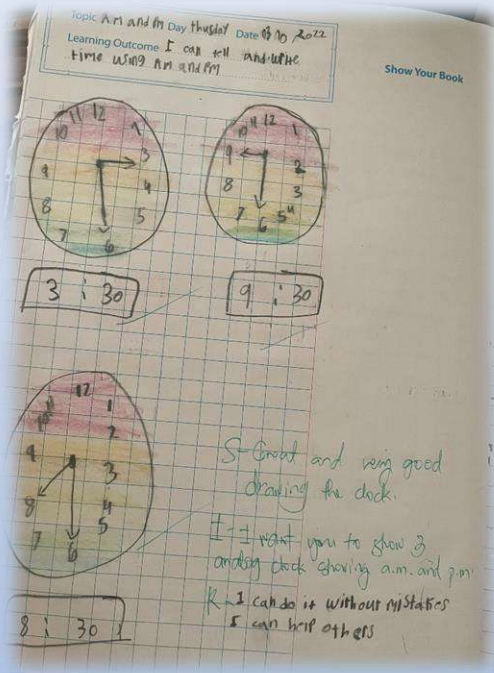 Topic Am and Pm Day thusday Date 2022
Learning Outcome I can tell and write
time using Am and PM
Show Your Book
11 12
10 1
9 3
4
8 5
7 6
11 12
10 1
9 2
8 3
7 5 4
6
3 : 30
9 : 30
12
11 1
10 2
9 3
8 4
5
7 6
S- Great and very good
drawing the clock.
I- I want you to show 3
analog clock showing a.m. and p.m.
R- I can do it without mistakes
I can help others
8 : 30